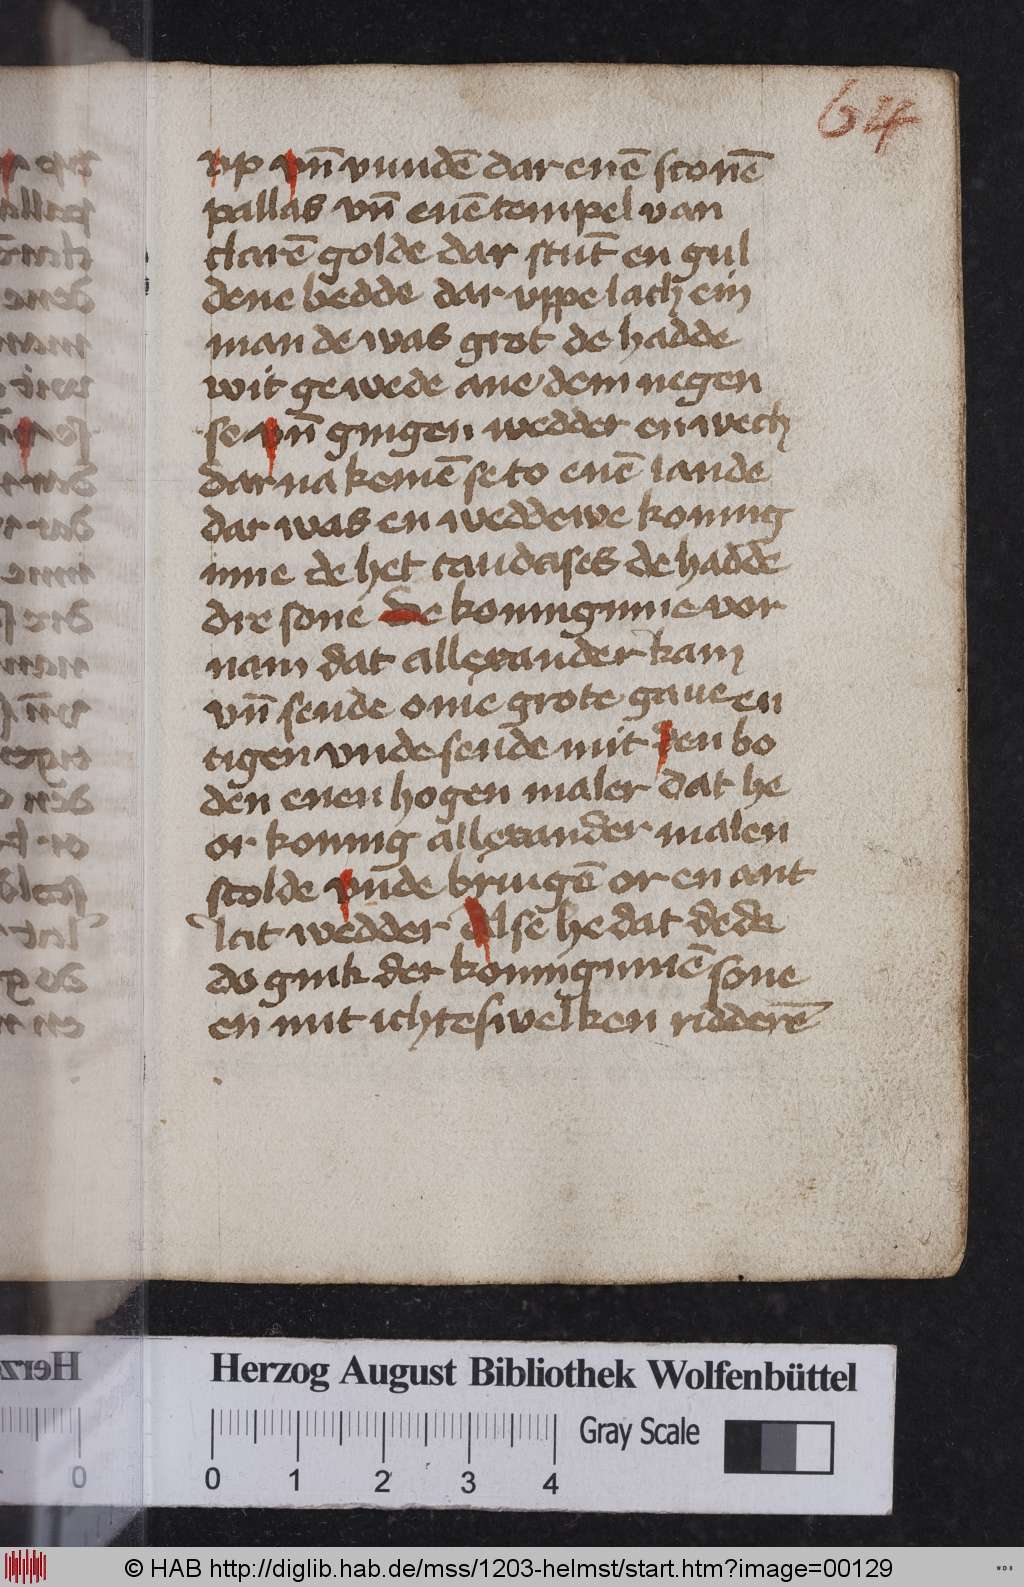 64
vp vn̄ vundē dar enē sconē
pallas vn̄ enē tempel van
clarē golde dar stūt en gul
dene bedde dar vppe lach ein
man de was grot de hadde
wit gewede ane dem negen
se vn̄ gingen wedder en wech
dar na kemē se to enē lande
dar was en weddewe koning
inne de het candacises de hadde
dre sone De koninginne vor
nam dat allexander kam
vn̄ sende ome grote gaue en
tigen vnde sende mit den bo
den enen hogen maler dat he
or koning allexander malen
scolde vnde bringē or en ant
lat wedder Alse he dat dede
do gink der koninginnē sone
en mit ichteswelken ridderē
Herzog August Bibliothek Wolfenbüttel
0 1 2 3 4
Gray Scale
© HAB http://diglib.hab.de/mss/1203-helmst/start.htm?image=00129